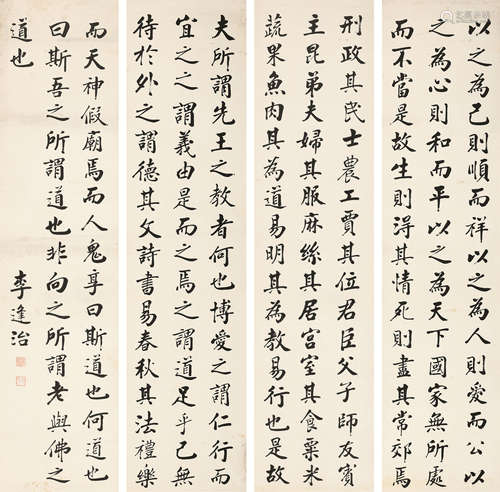 以之為己則順而祥以之為人則愛而公以
之為心則和而平以之為天下國家無所處
而不當是故生則得其情死則盡其常郊焉
刑政其民士農工賈其位君臣父子師友賓
主昆弟夫婦其服麻絲其居宮室其食粟米
蔬果魚肉其為道易明其為教易行也是故
夫所謂先王之教者何也博愛之謂仁行而
宜之之謂義由是而之焉之謂道足乎己無
待於外之謂德其文詩書易春秋其法禮樂
而天神假廟焉而人鬼享曰斯道也何道也
曰斯吾之所謂道也非向之所謂老與佛之
道也
李逢治